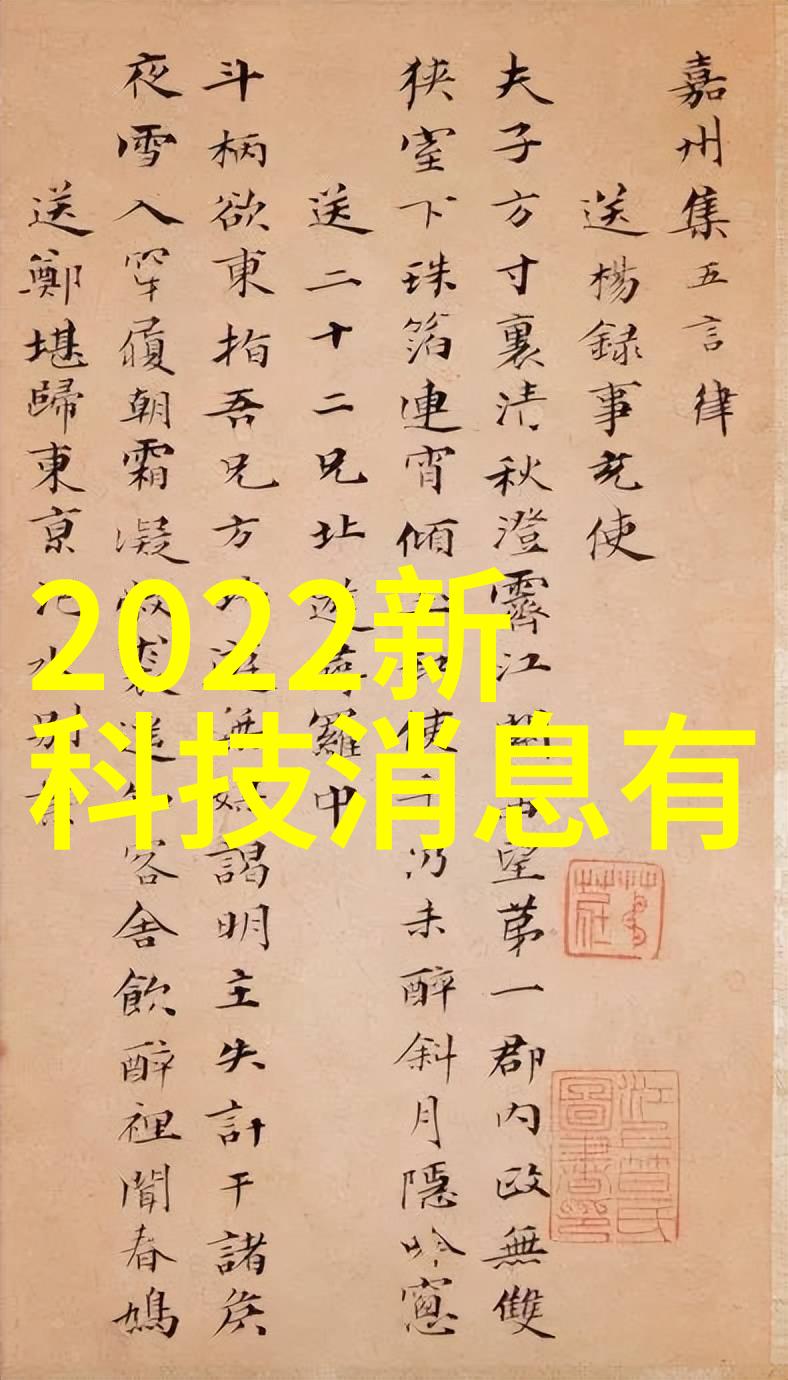 嘉州集五言律
送楊録事充使
夫子方寸裏清秋澄霽江 望第一郡内政無雙
狹室下珠箔連宵傾 使 仍未醉斜月隱吟窓
送二十二兄北遊 羅中
斗柄欲東指吾兄方 無 謁明主失計干諸侯
夜雪入穿履朝霜凝 裘遥 客舍飲醉裡聞春鳩
送鄭堪歸東京 水别
2022新
科技消息有